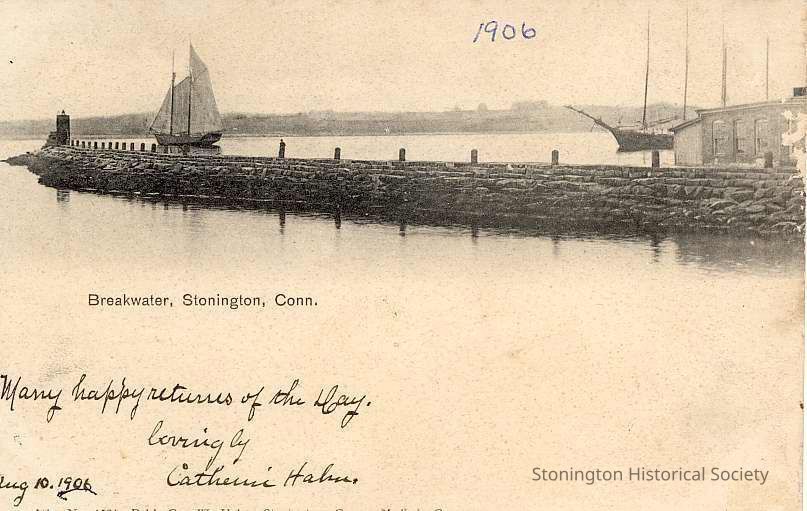 1906
Breakwater, Stonington, Conn.
Many happy returns of the Day.
lovingly
Catherine Hahn.
Aug 10. 1906
Stonington Historical Society